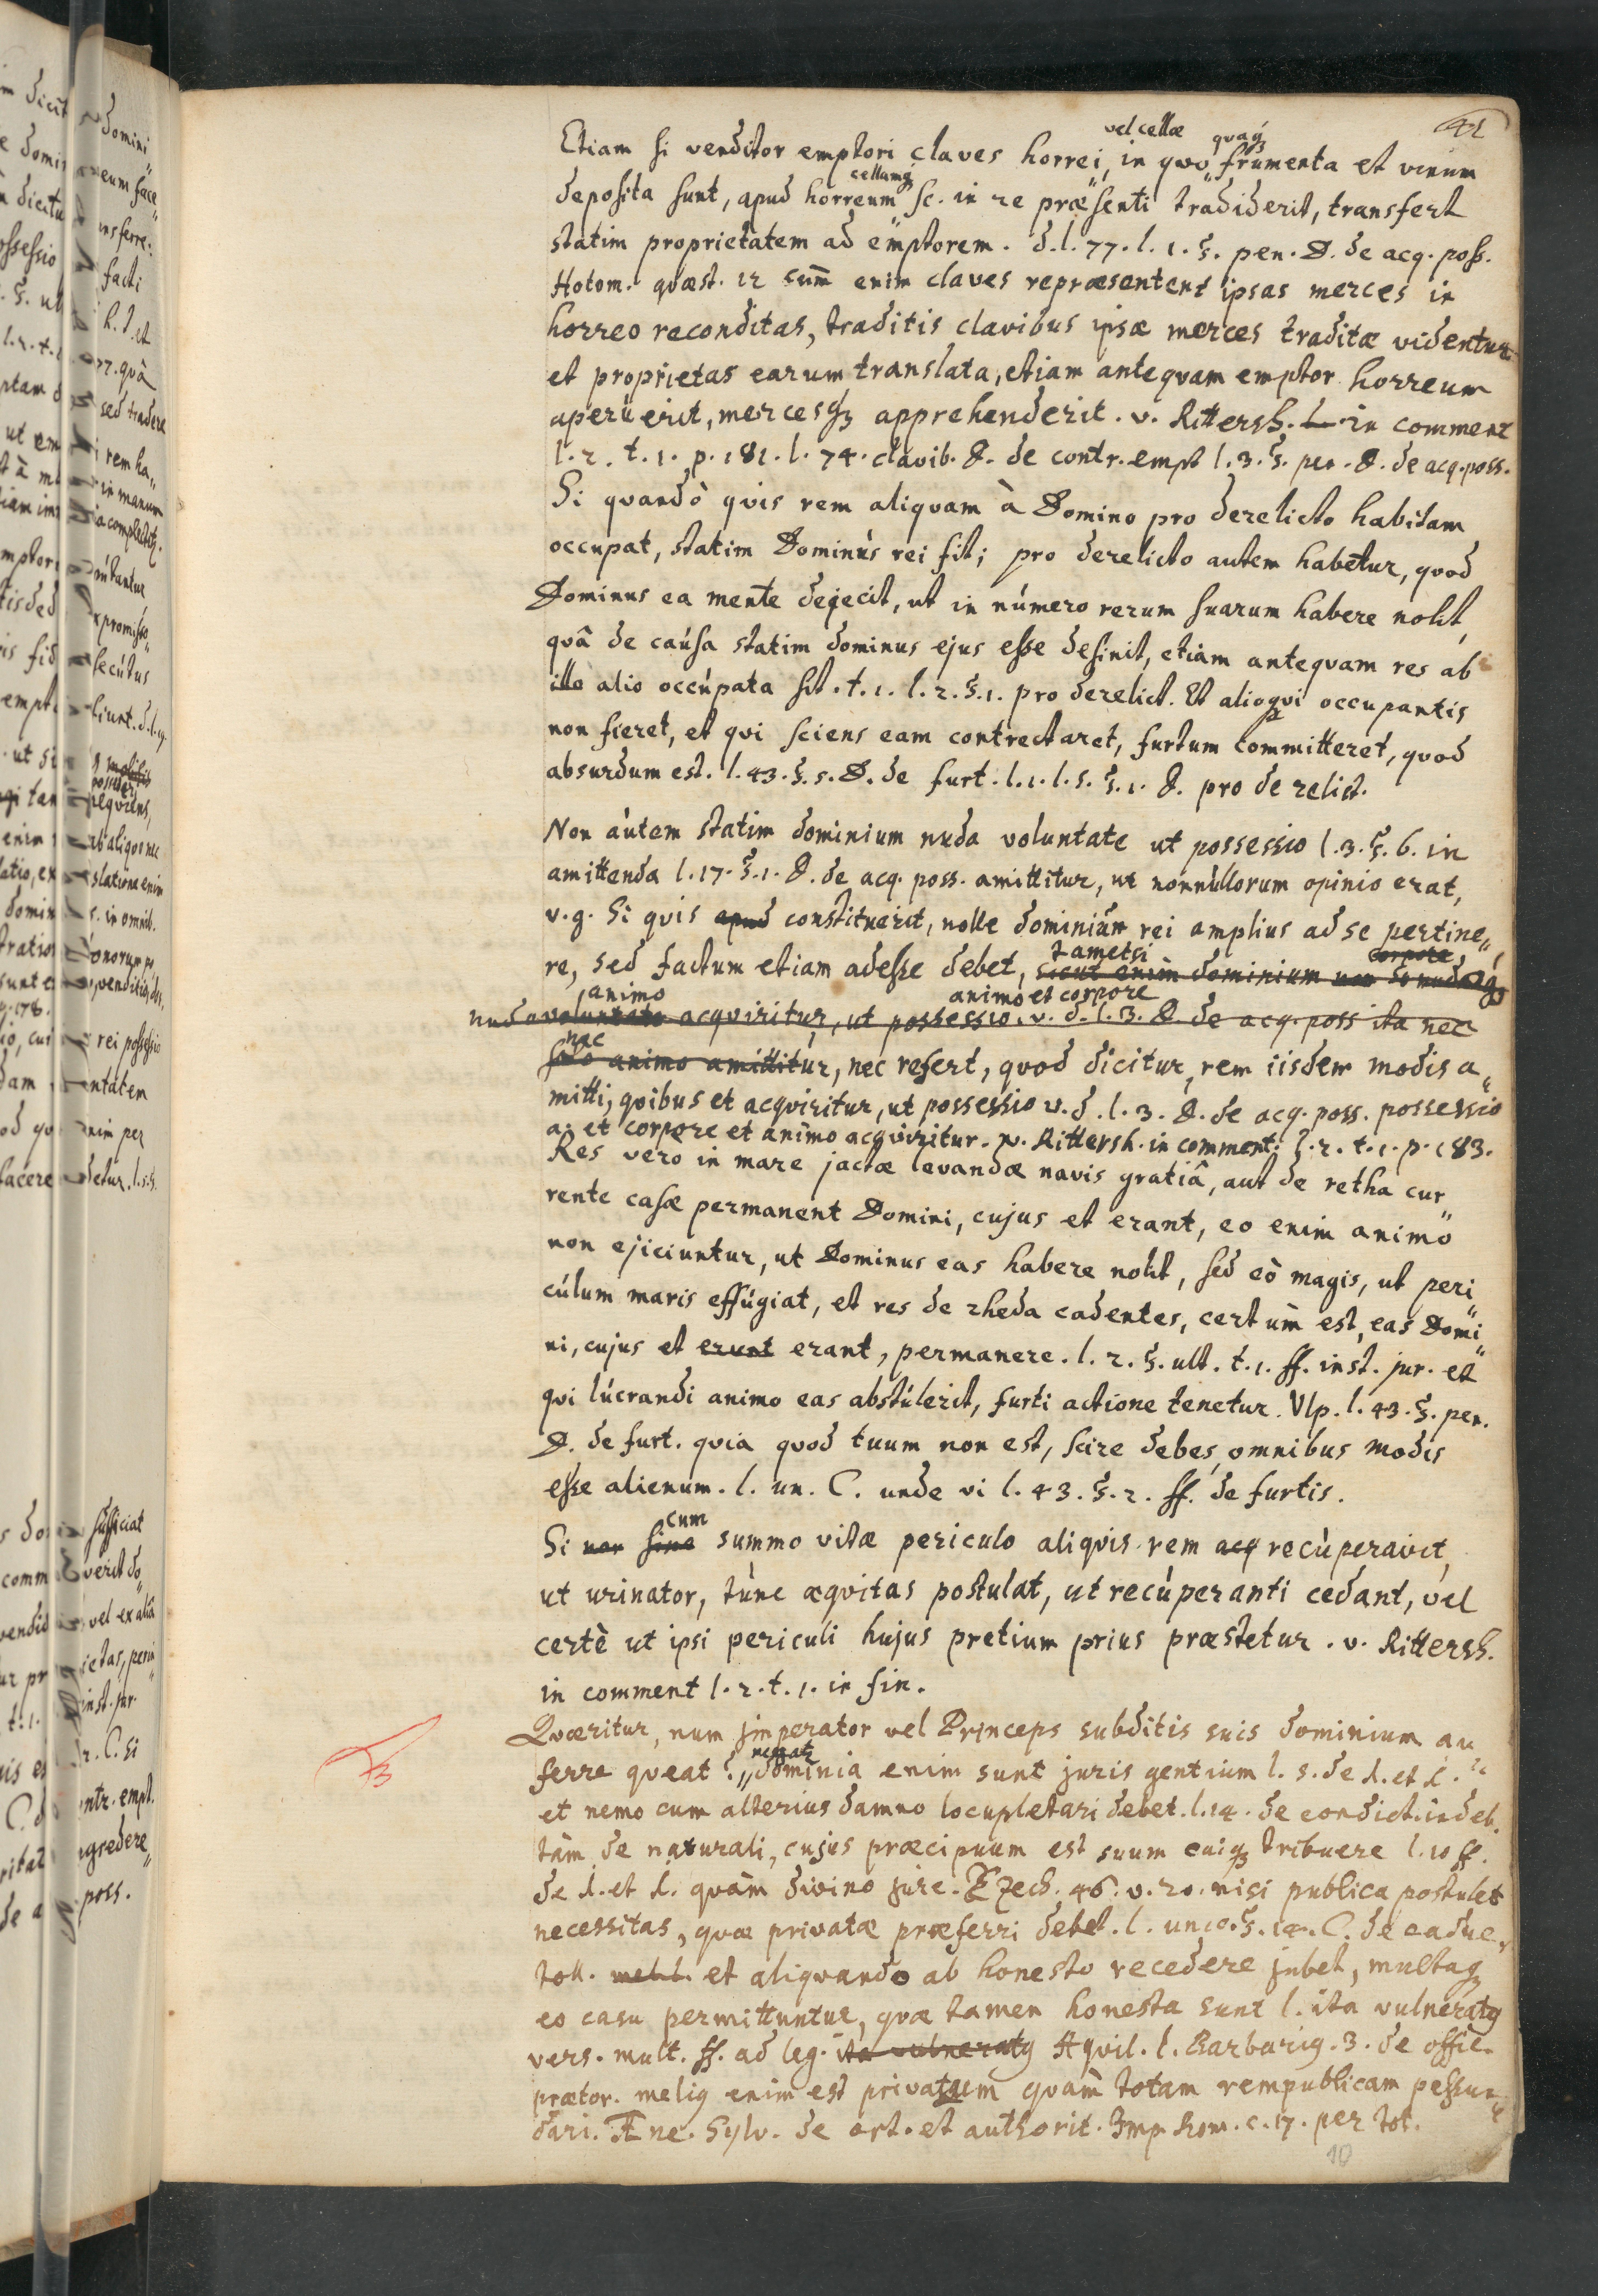 41
Etiam si venditor emptori claves horrei, vel cellæ in qvo frumenta et vinum
deposita sunt, apud horreum cellamq; sc. in re præsenti tradiderit, transfert
statim proprietatem ad emptorem. d.l. 77. l. 1. §. pen. D. de acq. poss.
Hotom. qvæst. 12 cum enim claves repræsentent ipsas merces in
horreo reconditas, traditis clavibus ipsæ merces traditæ videntur
et proprietas earum translata, etiam anteqvam emptor horreum
aperuerit, mercesq; apprehenderit. v. Rittersh. in comment
l. 2. t. 1. p. 181. l. 74. clavib. D. de contr. empt l. 3. §. pen. D. de acq. poss.
Si qvandò qvis rem aliqvam à Domino pro derelicto habitam
occupat, statim Dominus rei fit; pro derelicto autem habetur, qvod
Dominus ea mente dejecit, ut in número rerum suarum habere nolit,
qvâ de caúsa statim dominus ejus esse desinit, etiam anteqvam res ab
illo alio occúpata sit. t. 1. l. 2. §. 1. pro derelict. Et alioqvi occupantis
non fieret, et qvi sciens eam contrectaret, furtum committeret, qvod
absurdum est. l. 43. §. 5. D. de furt. l. 1. l. 5. §. 1. D. pro derelict.
Non aútem statim dominium nuda voluntate ut possessio l. 3. §. 6. in
amittenda l. 17. §. 1. D. de acq. poss. amittitur, ut nonnúllorum opinio erat,
v. g. Si qvis apud constituerit, nolle dominiúm rei amplius ad se pertine„
re, sed factum etiam adesse debet, tametsi sicut enim dominium non corpore,
nuda voluntate animo acqviritur, ut possessio animo et corpore v. d. l. 3. D. de acq. poss ita nec
nec solo animo amittitúr, nec refert, qvod dicitur, rem iisdem modis a„
mitti, qvibus et acqviritur, ut possessio v. d. l. 3. D. de acq. poss. possessio
a. et corpore et animo acqviritur. v. Rittersh. in comment: l. 2. t. 1. p. 183.
Res vero in mare jactæ levandæ navis gratiâ, aut de retha cur„
rente casæ permanent Domini, cujus et erant, eo enim animo
non ejiciuntur, ut Dominus eas habere nolit, sed eò magis, ut peri„
cúlum maris effúgiat, et res de rheda cadentes, certúm est, eas Domi„
ni, cujus et erunt erant, permanere. l. 2. §. ult. t. 1. ff. inst. jur. et
qvi lúcrandi animo eas abstúlerit, furti actione tenetur. Vlp. l. 43. §. pen.
D. de furt. qvia qvod tuum non est, scire debes, omnibus modis
esse alienum. l. un. C. unde vi l. 43. §. 2. ff. de furtis.
Si non sine cum summo vitæ periculo aliqvis rem acq recúperavit,
ut urinator, túnc æqvitas postulat, ut recúperanti cedant, vel
certè ut ipsi periculi hujus pretium prius præstetur. v. Rittersh.
in comment l. 2. t. 1. in fin.
Qværitur, num imperator vel Princeps subditis suis dominium au„
ferre qveat? negatr dominia enim sunt juris gentium l. 5. de J. et J.
et nemo cum alterius damno locupletari debet. l. 14. de condict. indeb.
tàm de naturali, cujus præcipuum est suum cuiq; tribuere l. 10 ff.
de J. et J. qvàm divino jure. Ezech. 46. v. 20. nisi publica postulet
necessitas, qvæ privatæ præferri debet. l. unic. §. 14. C. de caduc.
toll. et aliqvando ab honesto recedere jubet, multaq;
eo casu permittuntur, qvæ tamen honesta sunt l. ita vulneratq
vers. mult. ff. ad leg. ita vulneratq Aqvil. l. Barbariq. 3. de offic.
prætor. meliq enim est privatum qvàm totam rempublicam pessun„
dari. Æne. Sylv. de ort. et authorit. Imp Rom. c. 17. per tot.
10